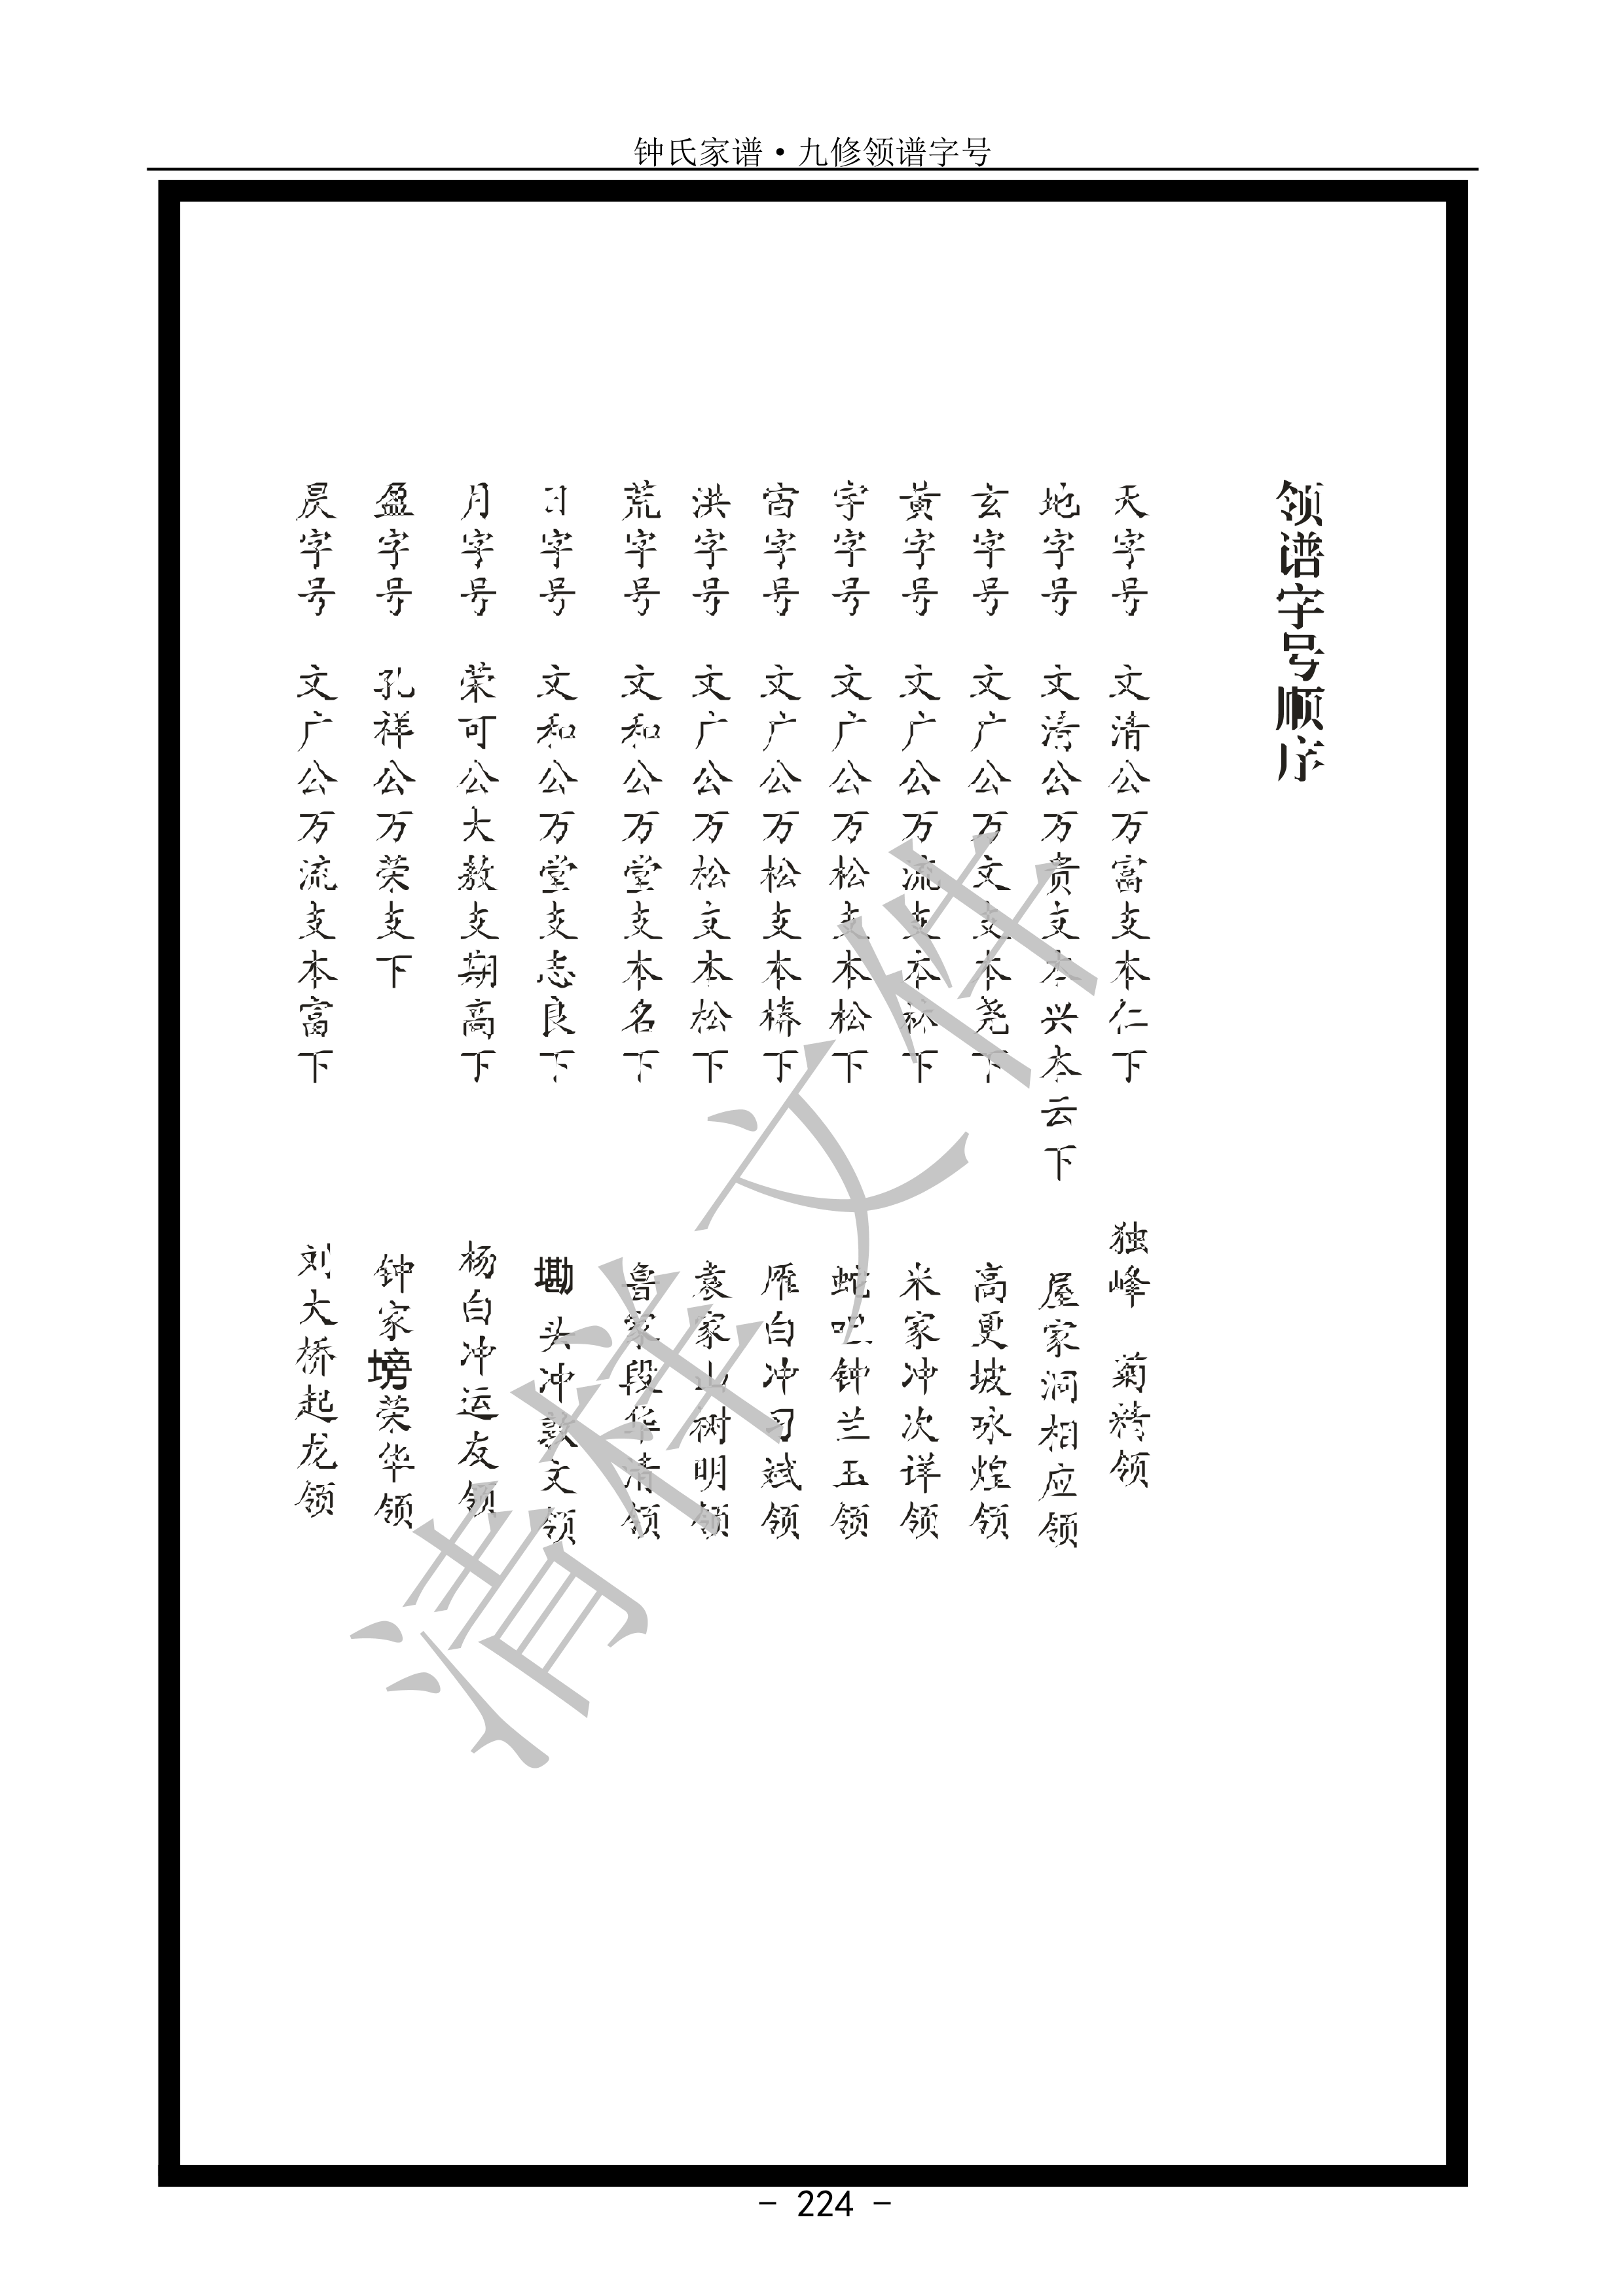 钟氏家谱·九修领谱字号
领谱字号顺序
天字号 文清公万富支本仁下 独峰 菊精领
地字号 文清公万贵支本兴本云下 屋家洞相应领
玄字号 文广公万文支本尧下 高更坡咏煌领
黄字号 文广公万流支本秋下 米家冲次详领
宇字号 文广公万松支本松下 蛇吧钟兰玉领
宙字号 文广公万松支本椿下 雁白冲习斌领
洪字号 文广公万松支本松下 袁家山树明领
荒字号 文和公万堂支本名下 鲁家段华清领
日字号 文和公万堂支志良下 墈头冲敦文领
月字号 荣可公大敖支期高下 杨白冲运友领
盈字号 孔祥公万荣支下 钟家塝荣华领
昃字号 文广公万流支本富下 刘大桥起龙领
清样文件
- 224 -